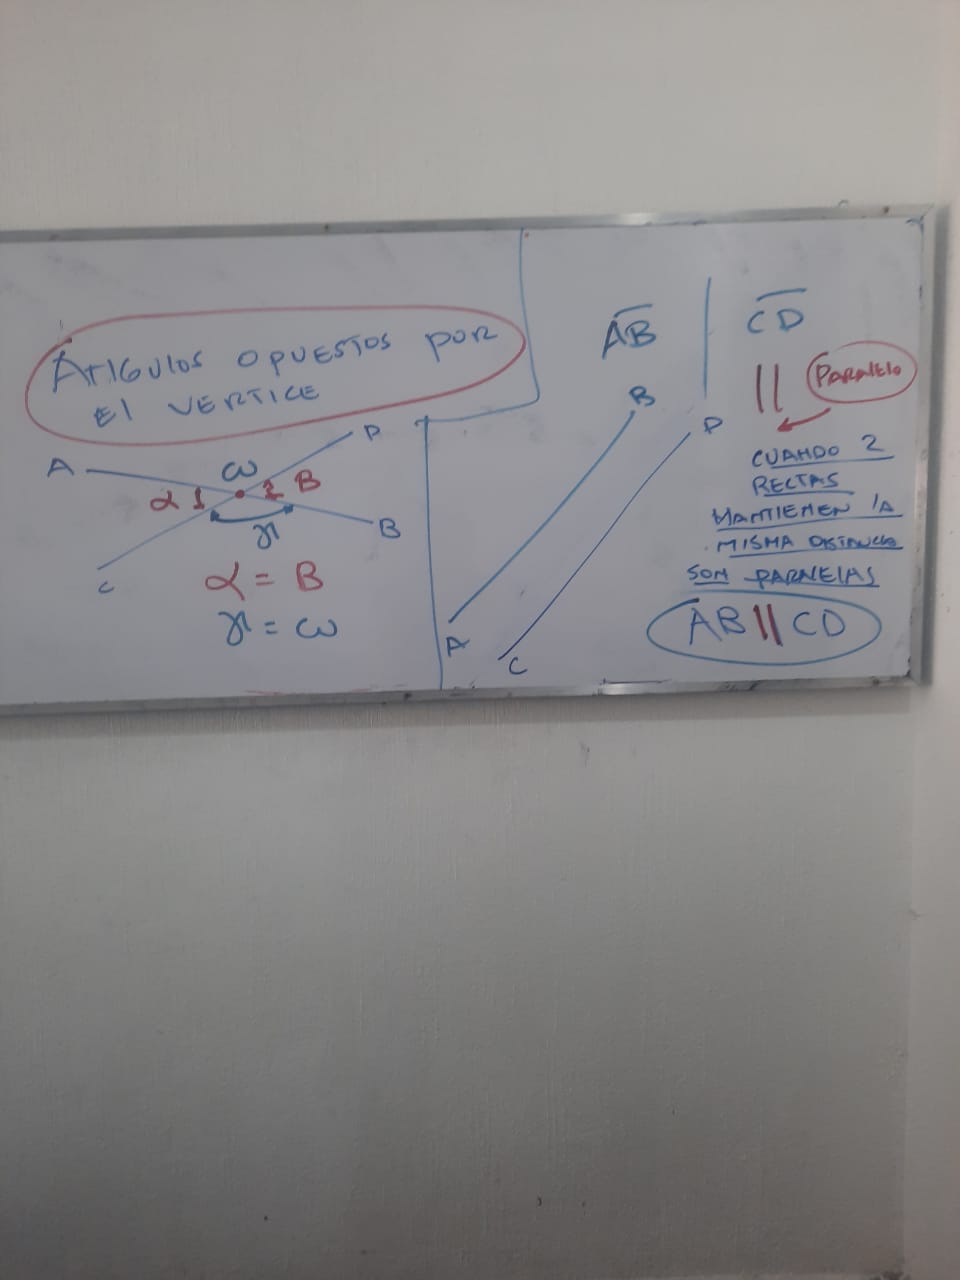 Angulos opuestos por
El VERTICE
A
D
ω
α 1
2 B
γ
B
C
α = B
γ = ω
AB
CD
||
PARAlElo
B
D
A
C
CUANDO 2
RECTAS
MANTIENEN lA
MISMA DISTANCIA
SON PARAlElAS
AB || CD